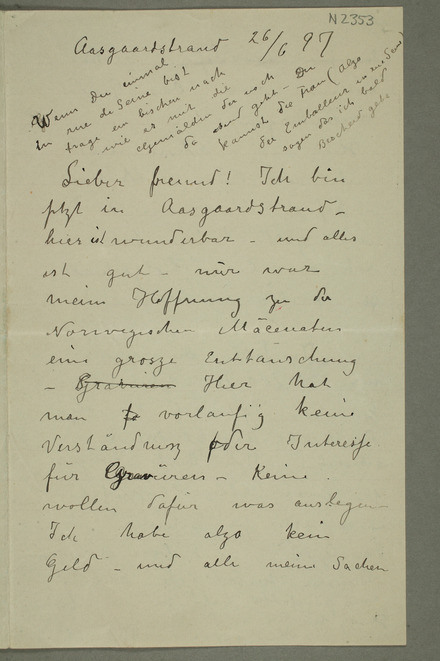 N 2353
Aasgaardstrand 26/6 97
Wenn Du einmal
in rue de Seine bist
frage ein bischen nach
wie es mit die
Gemälden die noch
da sind geht – Du
kannst die Frau (also
der Emballeur in rue de Seine)
sagen das ich bald
Bescheid gebe
Lieber freund! Ich bin
jtzt in Aasgaardstrand –
hier ist wunderbar – und alles
ist gut – nür war
meine Hoffnung zu die
Norwegischen Mäcenaten
eine grosze Enttäuschung
– Hier hat
man vorlaufig keine
Verständnisz oder Interesse
für Gravüren – Keine
wollen dafür was auslegen
Ich habe algo kein
Geld – und alle meine Sachen